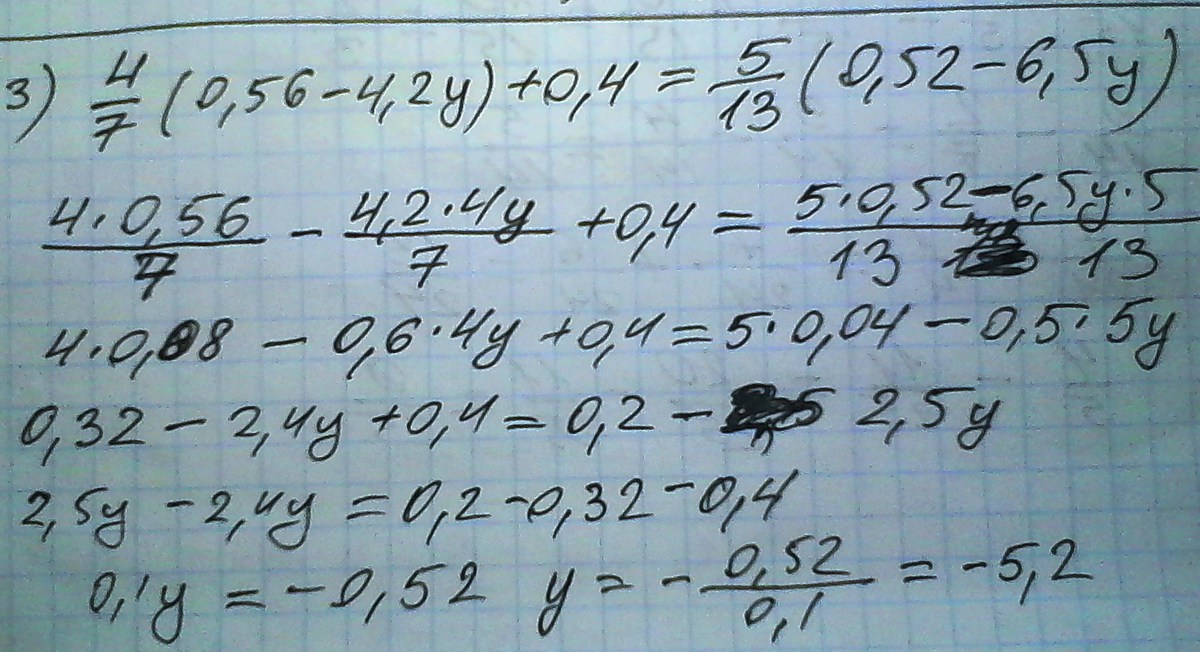 3) 4/7 (0,56 - 4,2y) + 0,4 = 5/13 (0,52 - 6,5y)
4·0,56/7 - 4,2·4y/7 + 0,4 = 5·0,52/13 - 6,5y·5/13
4·0,08 - 0,6·4y + 0,4 = 5·0,04 - 0,5·5y
0,32 - 2,4y + 0,4 = 0,2 - 2,5y
2,5y - 2,4y = 0,2 - 0,32 - 0,4
0,1y = -0,52 y = - 0,52/0,1 = -5,2